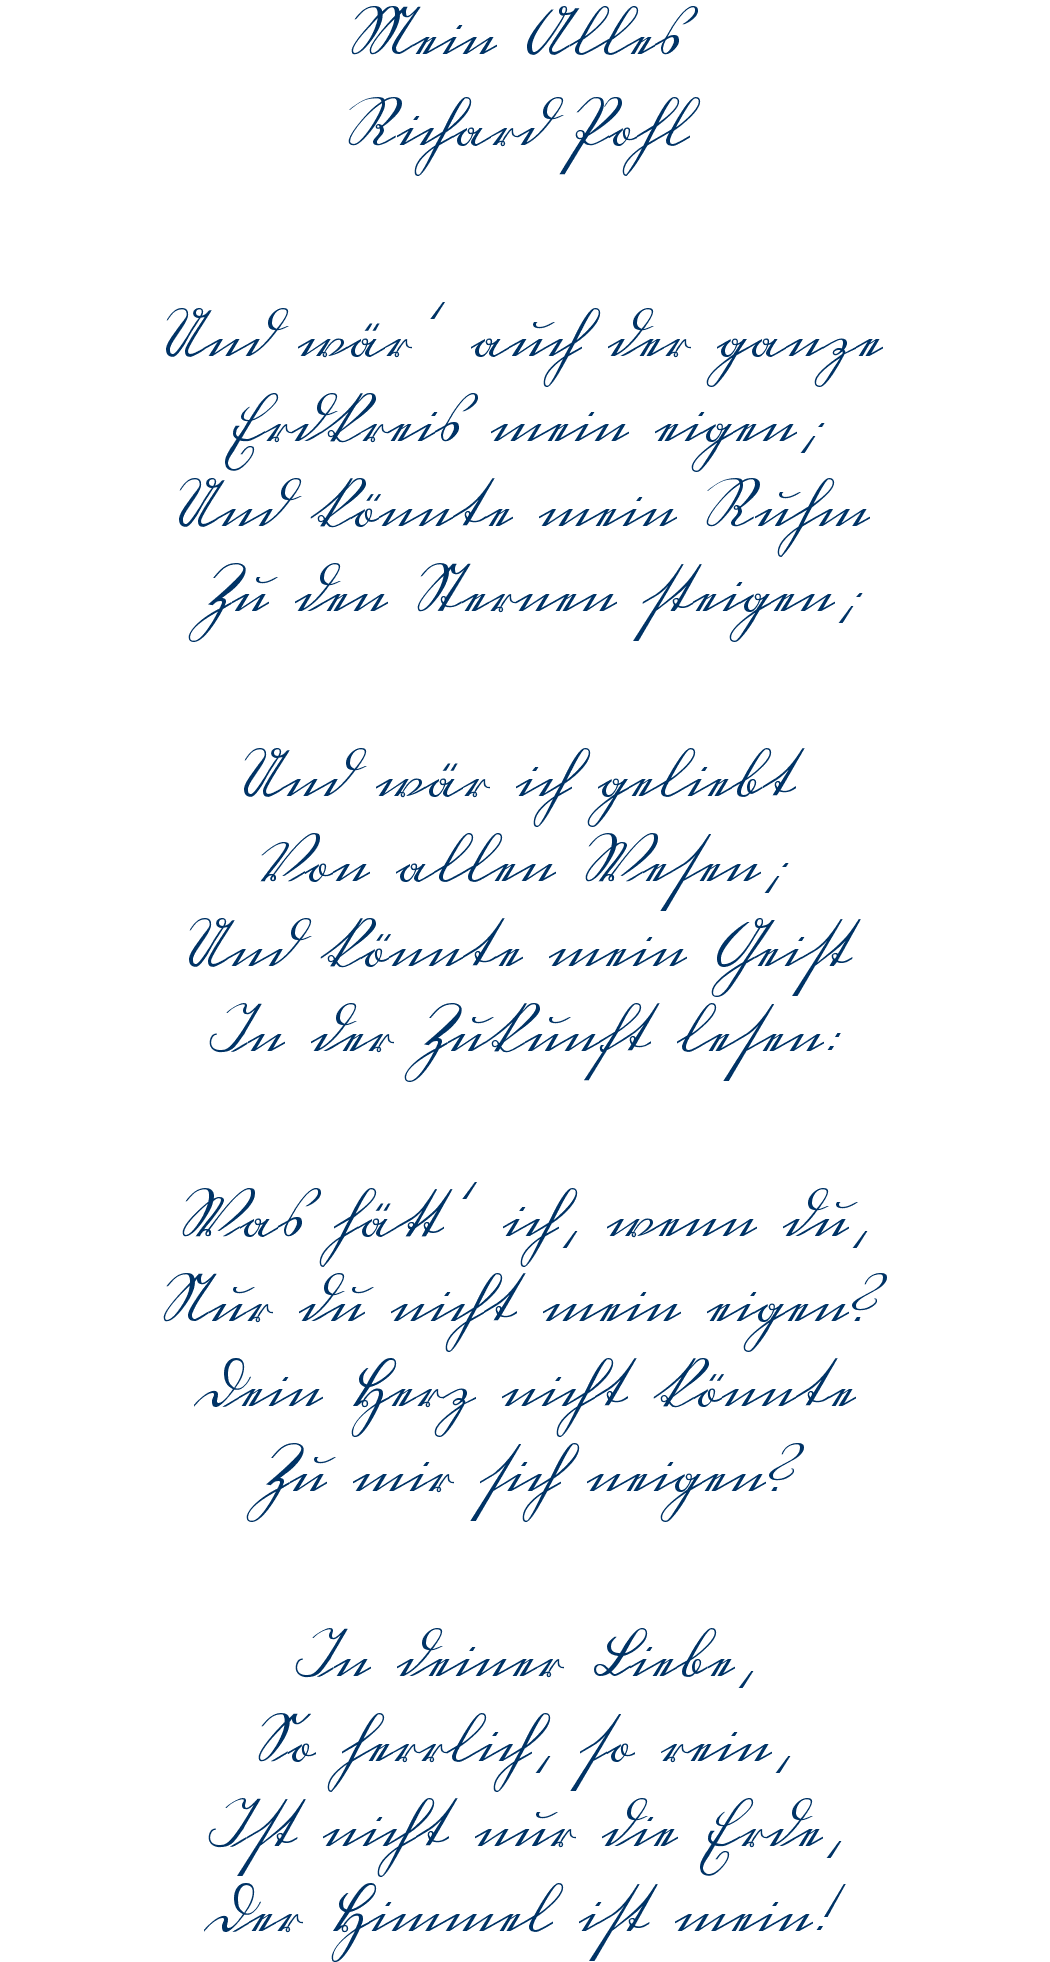 Mein Alles
Richard Pohl
Und wär' auch der ganze
Erdkreis mein eigen;
Und könnte mein Ruhm
Zu den Sternen steigen;
Und wär ich geliebt
Von allen Wesen;
Und könnte mein Geist
In der Zukunft lesen:
Was hätt' ich, wenn du,
Nur du nicht mein eigen?
Dein Herz nicht könnte
Zu mir sich neigen?
In deiner Liebe,
So herrlich, so rein,
Ist nicht nur die Erde,
Der Himmel ist mein!